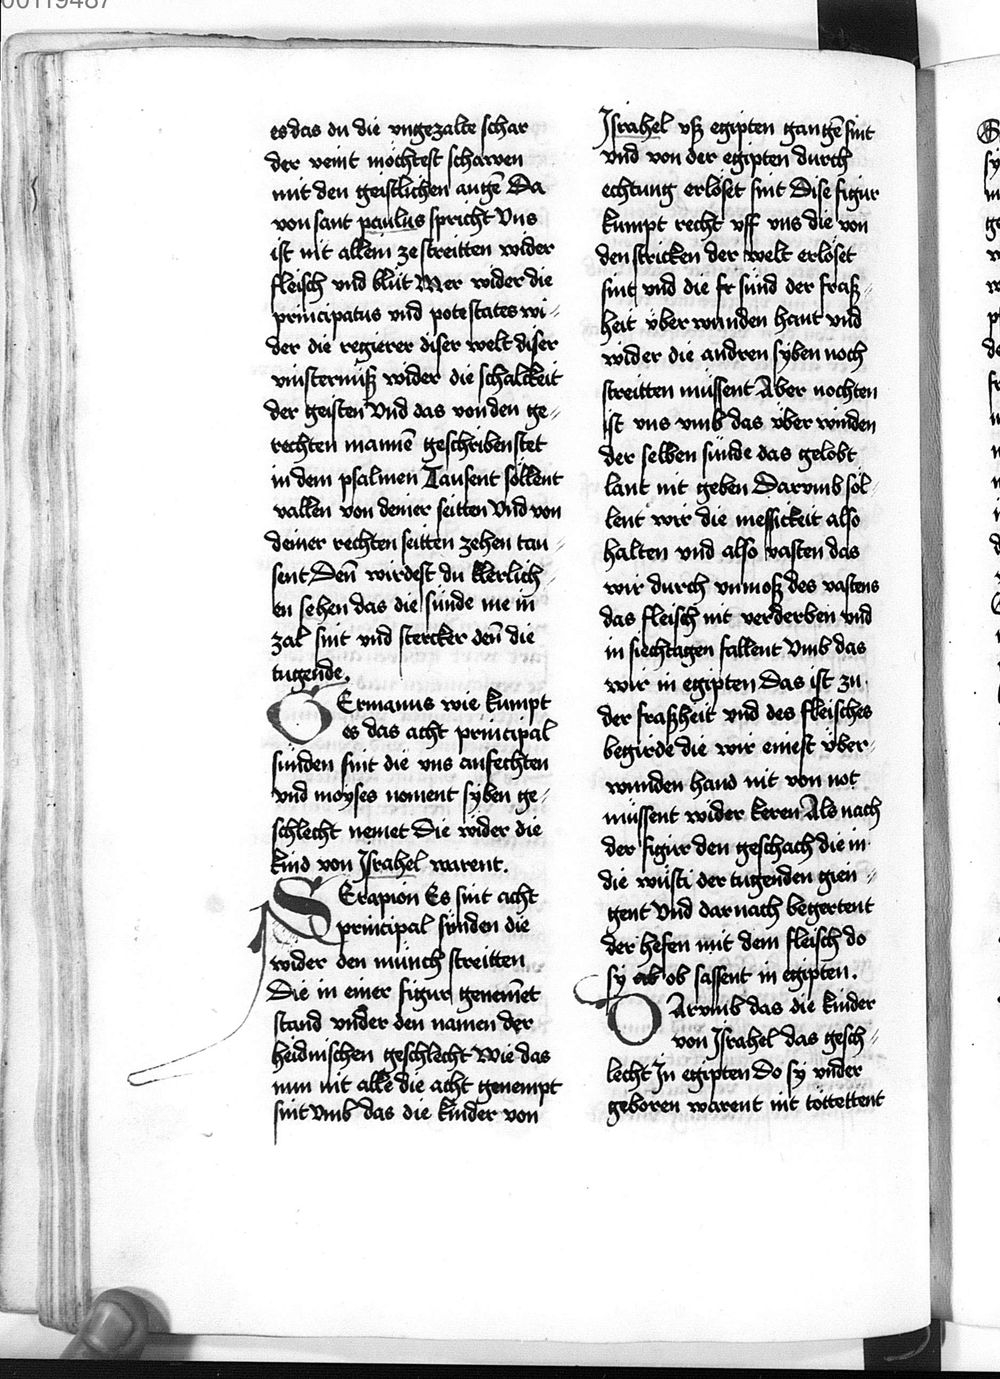 00119487
es das du die vngezalte schar
der veint möchtest schawen
mit den geistlichen augē Da
von sant paulus spricht Vns
ist nit allein ze streitten wider
fleisch vnd blůt Mer wider die
principatus vnd potestates wi-
der die regierer diser welt diser
vinsternuß wider die schalckeit
der geisten Vnd das von den ge-
rechten mannē geschriben stet
in dem psalmen Tausent söllent
vallen von deiner seitten Vnd von
deiner rechten seitten zehen tau-
sent Deñ wirdest du klerlich-
en sehen das die sünde me in
zal sint vnd stercker deñ die
tugende.
GErmanus wie kumpt
es das acht principal
sünden sint die vns anfechten
vnd moyses noment syben ge-
schlecht nemet Die wider die
kind von Jsrahel warent.
SErapion Es sint acht
principal sünden die
wider den münch streitten
Die in einer figur genem̄et
stand vnder den namen der
heidnischen geschlecht Wie das
nun nit alle die acht genempt
sint Vmb das die kinder von
Jsrahel vß egipten gangē sint
vnd von der egipten durch
echtung erlöset sint Dise figur
kumpt recht vff vns die von
den stricken der welt erlöset
sint vnd die fr sünd der fraß-
heit über wunden hant vnd
wider die andren syben noch
streitten müssent Aber nochten
ist vns vmb das über winden
der selben sünde das gelobt
lant nit geben Darvmb söl-
lent wir die messickeit also
halten vnd also vasten das
wir durch vnmoß des vastens
das fleisch nit verderben vnd
in siechtagen fallent Vmb das
wir in egipten Das ist zu
der fraßheit vnd des fleisches
begirde die wir einest über-
wunden hand nit von not
müssent wider keren Als nach
der figur den geschach die in
die wüsti der tugenden gien-
gent Vnd darnach begertent
der hefen mit dem fleisch do
sy ab ob sassent in egipten.
DArvmb das die kinder
von Jsrahel das gesch-
lecht Jn egipten Do sy vnder
geboren warent nit töttettent